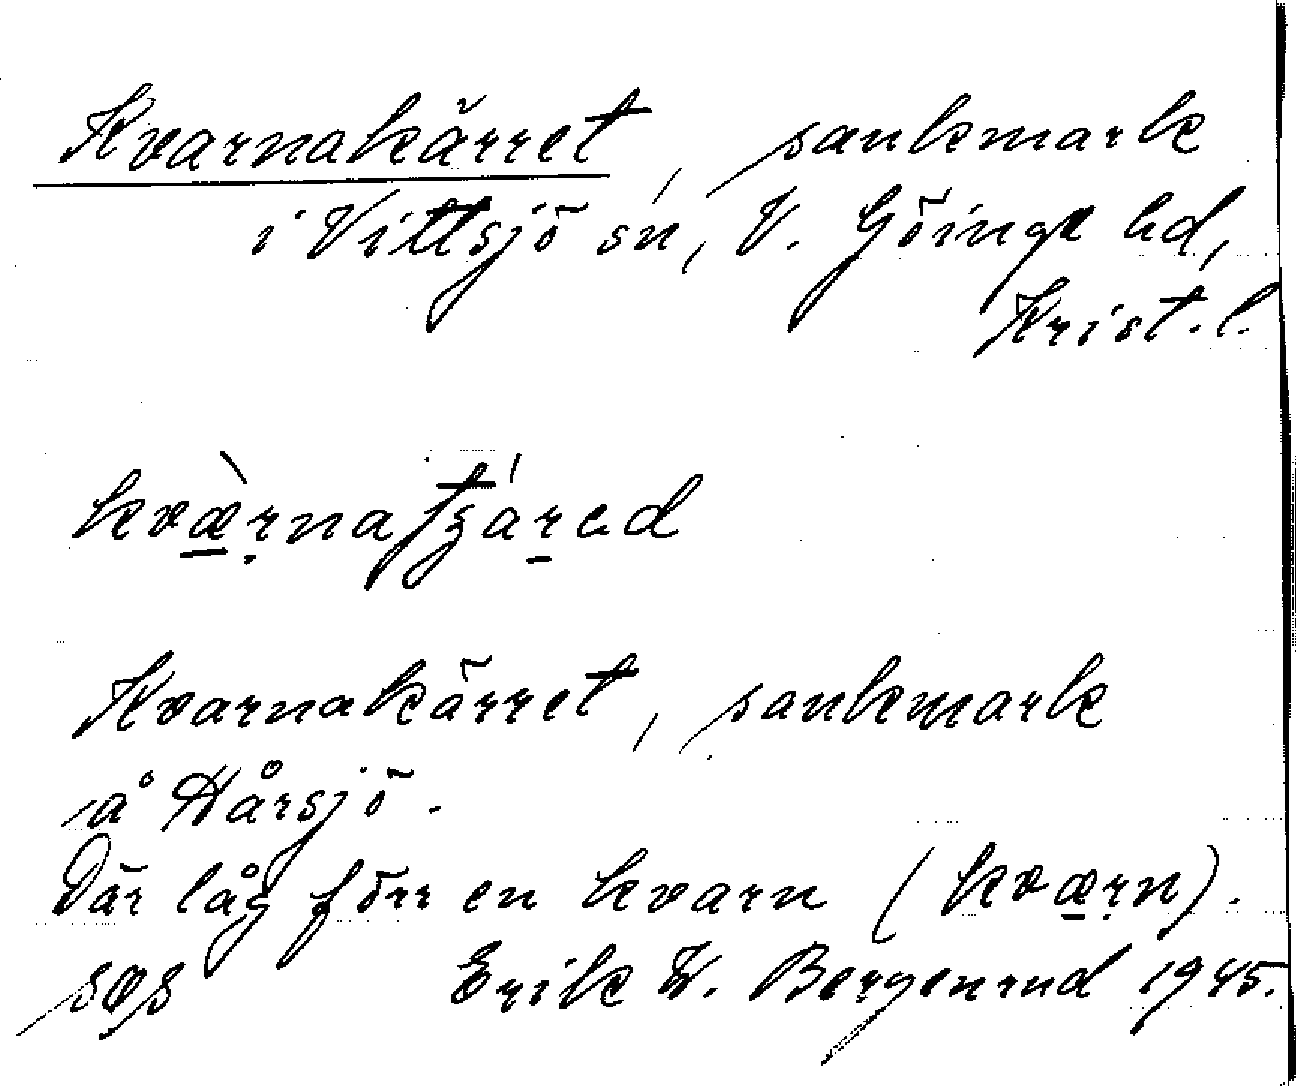 Kvarnakärret, sankmark
i Vittsjö sn, V. Göinge hd,
Krist. l.
kvæ̠̀ṛna
Kvarnakärret, sankmark
å Hårsjö.
Där låg förr en kvarn (kvæ̠ṛn).
Erik W. Bergenrud 1945.